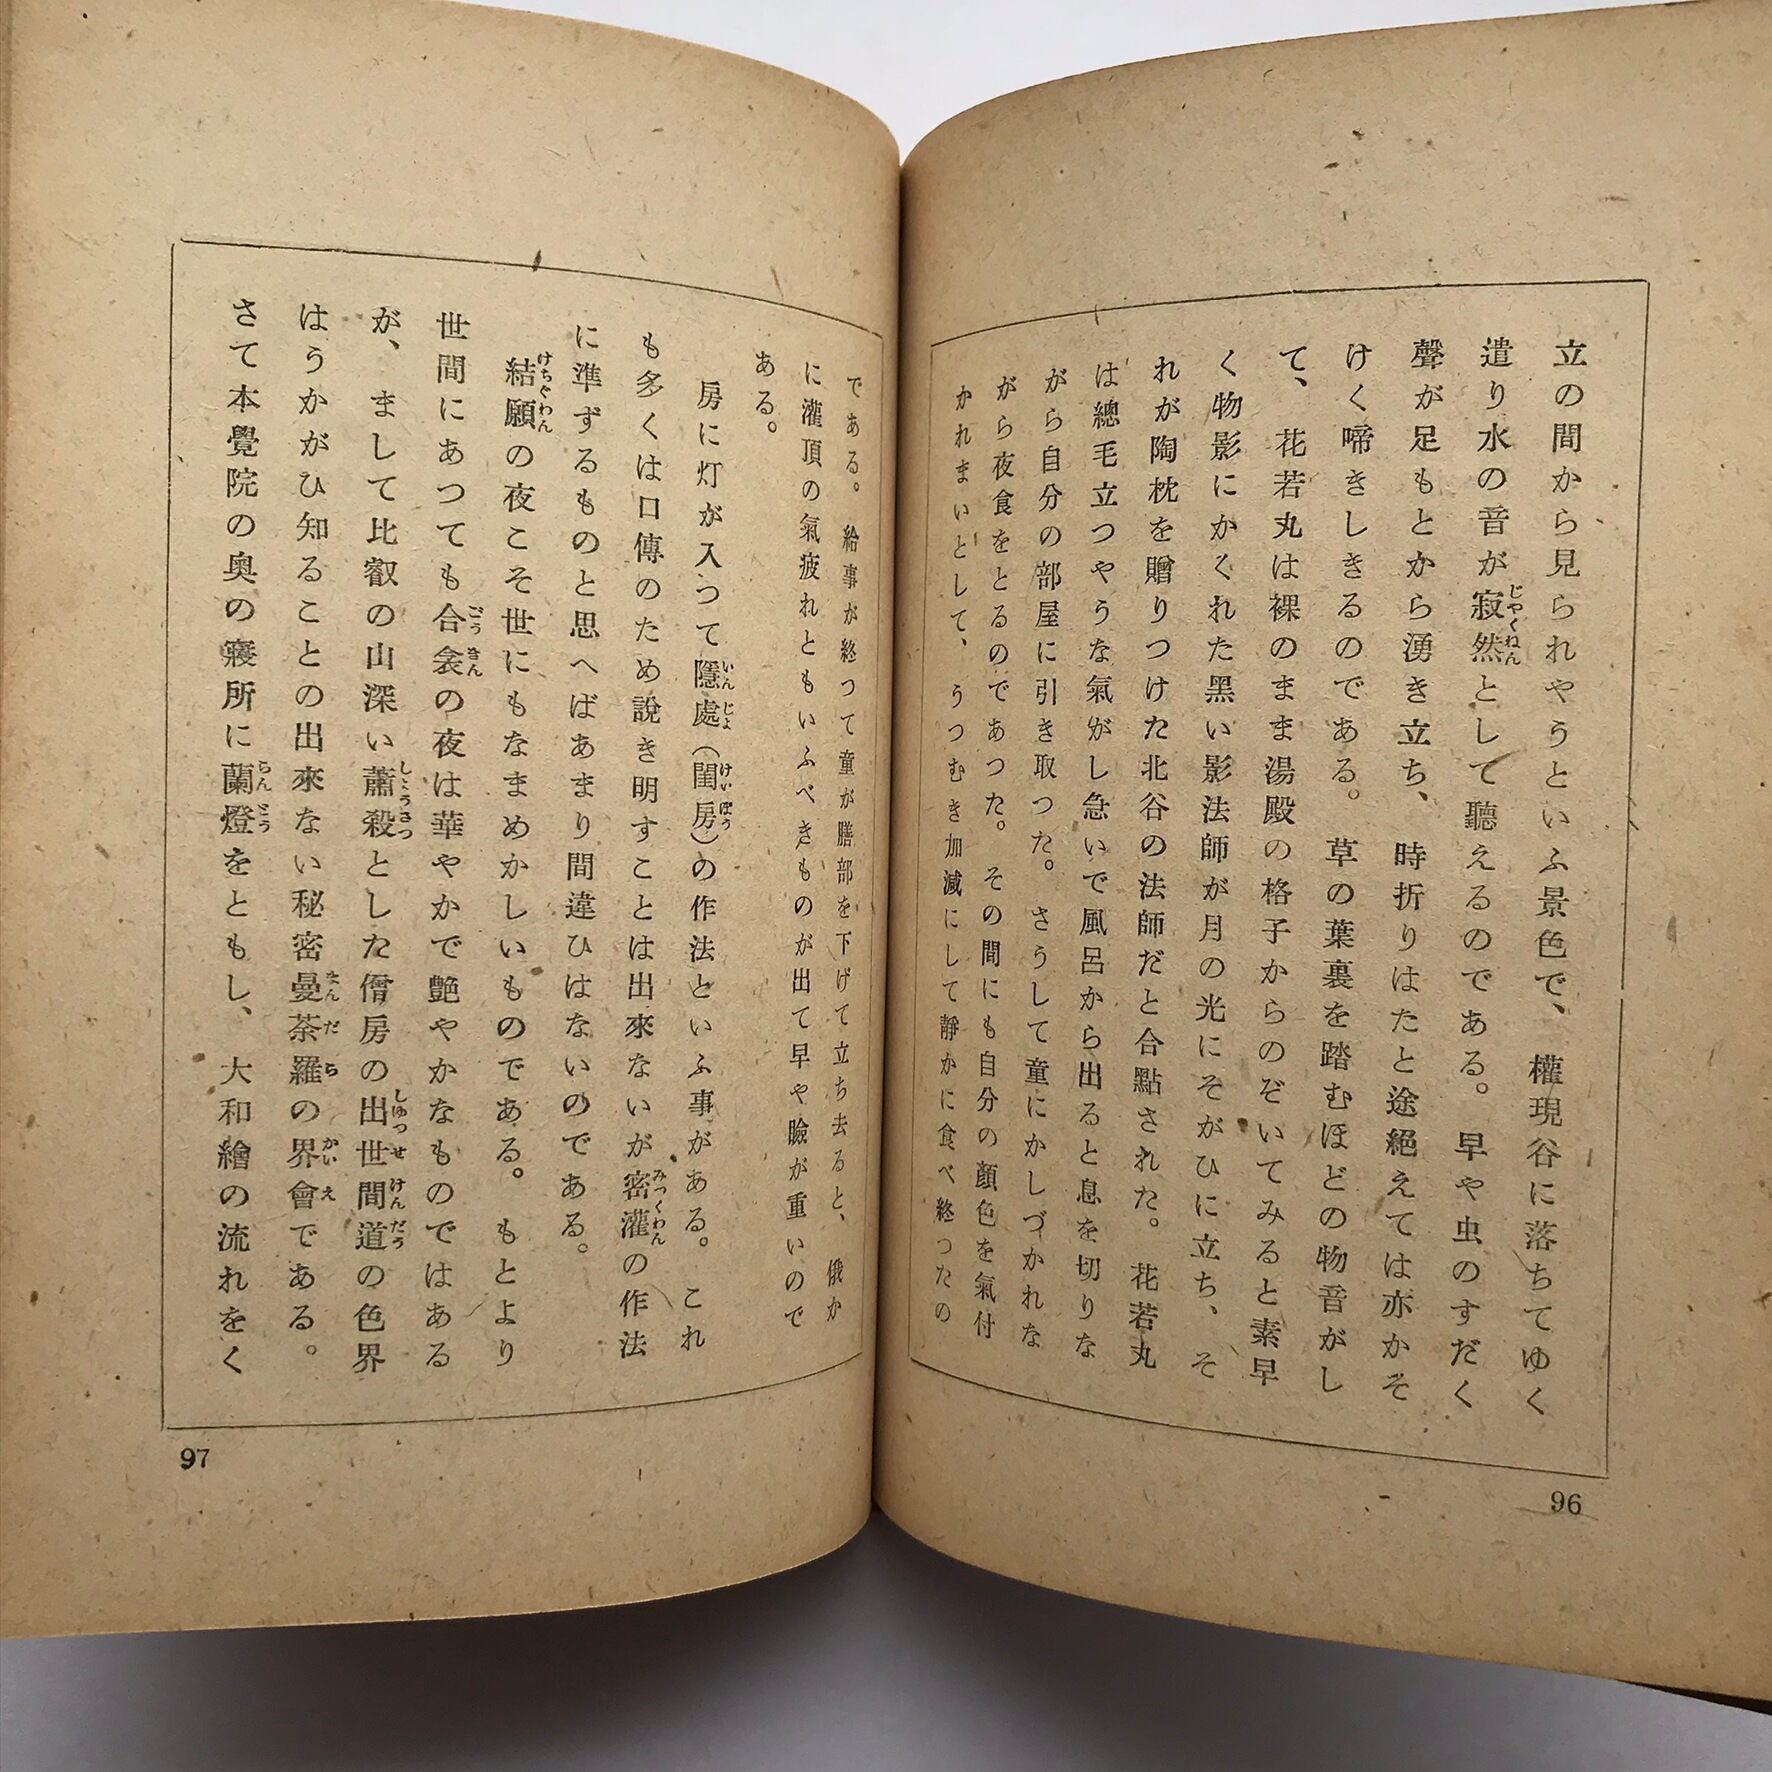 立の間から見られやうといふ景色で、權現谷に落ちてゆく
遣り水の音が寂然じやくねんとして聽えるのである。早や虫のすだく
聲が足もとから湧き立ち、時折りはたと途絕えては亦かそ
けく啼きしきるのである。草の葉裏を踏むほどの物音がし
て、花若丸は裸のまま湯殿の格子からのぞいてみると素早
く物影にかくれた黑い影法師が月の光にそがひに立ち、そ
れが陶枕を贈りつけた北谷の法師だと合點された。花若丸
は總毛立つやうな氣がし急いで風呂から出ると息を切りな
がら自分の部屋に引き取つた。さうして童にかしづかれな
がら夜食をとるのであつた。その間にも自分の顏色を氣付
かれまいとして、うつむき加減にして靜かに食べ終つたの
96
である。給事が終つて童が膳部を下げて立ち去ると、俄か
に灌頂の氣疲れともいふべきものが出て早や瞼が重いので
ある。
房に灯が入つて隱處いんじよ（閨房けいぼう）の作法といふ事がある。これ
も多くは口傳のため說き明すことは出來ないが密灌みつくわんの作法
に準ずるものと思へばあまり間違ひはないのである。
結願けちぐわんの夜こそ世にもなまめかしいものである。もとより
世間にあつても合衾ごうきんの夜は華やかで艷やかなものではある
が、まして比叡の山深い蕭殺しようさつとした僧房の出世間道しゆつせけんだうの色界
はうかがひ知ることの出來ない秘密曼荼羅まんだらの界會かいえである。
さて本覺院の奥の寢所に蘭燈らんどうをともし、大和繪の流れをく
97